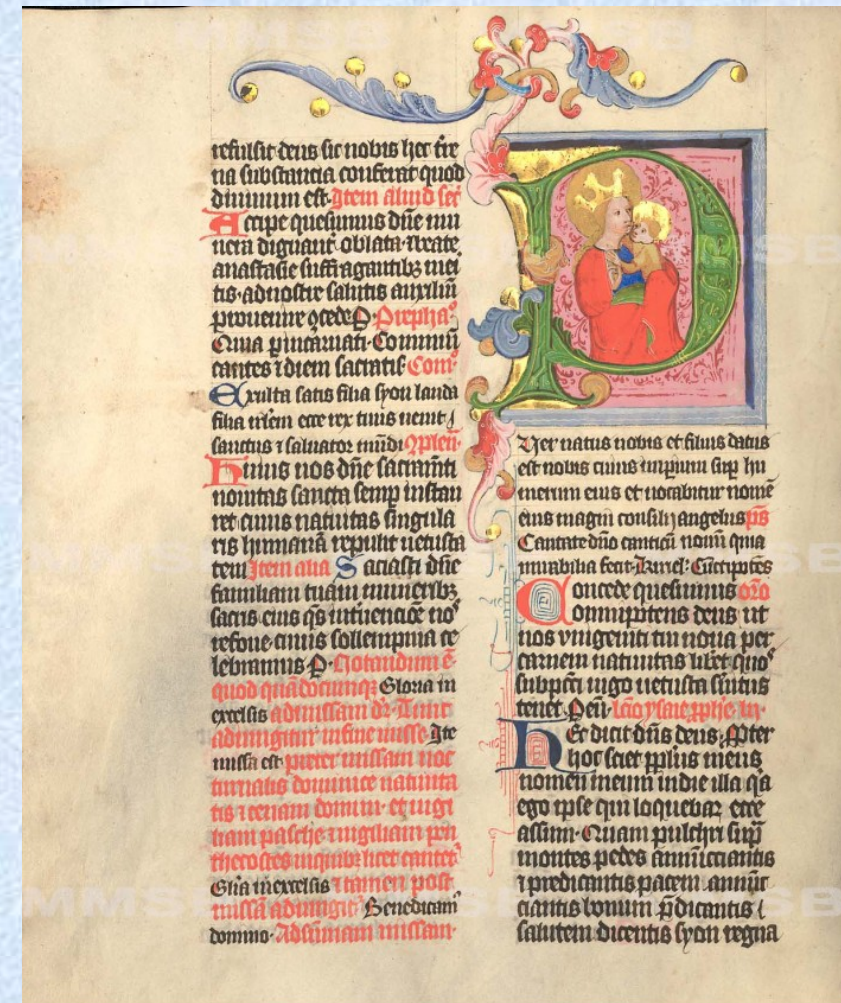 refulsit deus sic nobis hec tre
na substancia conferat quod
diuinum est. Item aliud secr
Accipe quesumus dn̄e mu
nera dignant̄ oblata. ⁊ beate
anastasie suffragantibꝫ meri
tis. ad nostre salutis auxiliū
prouenire ꝯcede. P. Prephaº
Quia p̱ incarnati. Cōmuni
cantes ⁊ diem sacratis. Comº
Exulta satis filia syon lauda
filia irl̄em ecce rex tuus uenit
sanctus ⁊ saluator mūdi. ꝯplen.
Huius nos dn̄e sacram̄ti
nouitas sancta semp̱ instau
ret cuius natiuitas singula
ris humanā repulit uetusta
tem. Item alia Saciasti dn̄e
familiam tuam muneribꝫ
sacris eius qs̄ intuencōe noˢ
refoue. cuius sollempnia ce
lebramus. P. Notandum ē.
quod quādocumqꝫ Gloria in
excelsis ad missam dr̄. Tunc
adiungitur in fine misse. Ite
missa est. preter missam noc
turnalis dominice natiuita
tis ⁊ cenam domini. et uigi
liam pasche ⁊ uigiliam pen
thecostes in quibꝫ licet cantet̄
Glīa in excelsis ⁊ tamen post
missā adiungit̄. Benedicam̄
domino. Ad sūmam missam.
PUer natus nobis et filius datus
est nobis cuius imp̱ium sup̱ hu
merum eius et uocabitur nomē
eius magni consilij angelus. pˢ
Cantate dn̄o canticū nouū quia
mirabilia fecit. Kyriel. Cūctipotēs
Concede quesumus orō
omnipotens deus ut
nos vnigeniti tui noua per
carnem natiuitas lib̄et quoˢ
sub pcc̄i iugo uetusta s̄uitus
tenet. P eū. lc̄io ysaie ꝓph̄e. lij.
Hec dicit dn̄s deus. ꝓpter
hoc sciet ppl̄us meus
nomen meum in die illa qa
ego ipse qui loquebar ecce
assum. Quam pulchri sup̱
montes pedes annūcciantis
⁊ predicantis pacem. annūc
ciantis bonum p̄dicantis
salutem dicentis syon regna